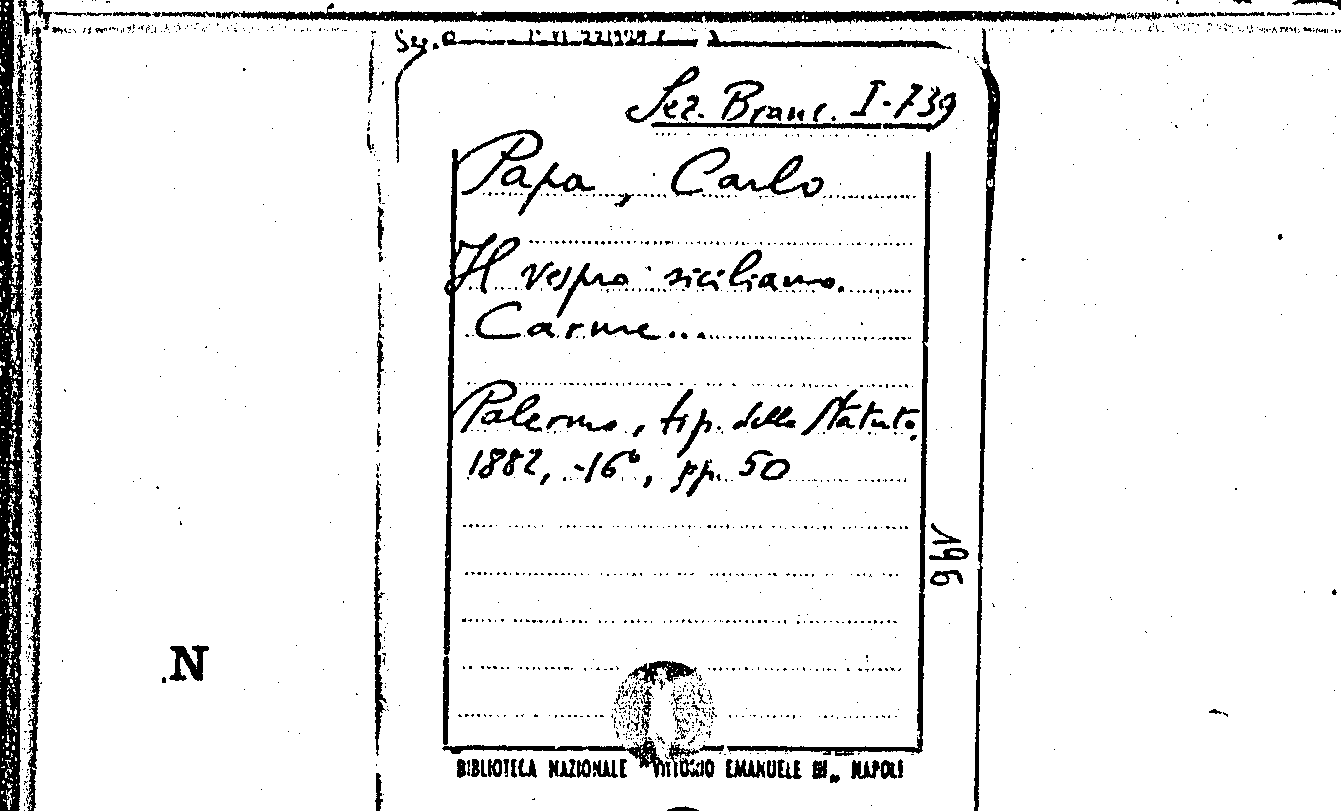 Sez. Branc. I-739
Papa, Carlo
Il vespro siciliano.
Carme...
Palermo, tip. dello Statuto.
1882, -16°, pp. 50
196
N
BIBLIOTECA NAZIONALE "VITTORIO EMANUELE III„ NAPOLI